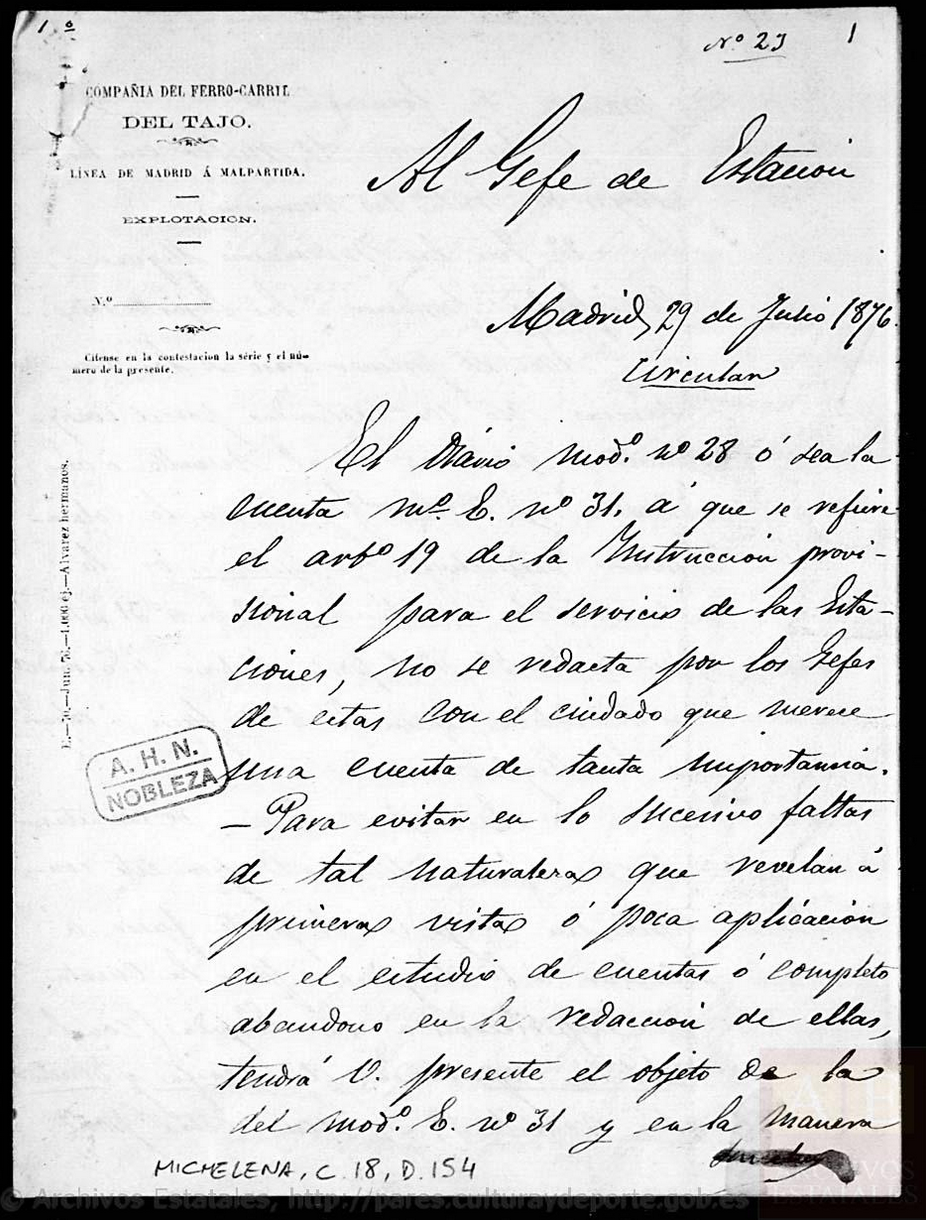 1º
Nº 23
1
COMPAÑIA DEL FERRO-CARRIL
DEL TAJO.
LÍNEA DE MADRID Á MALPARTIDA.
EXPLOTACION.
N.º
Cítense en la contestacion la série y el nú-
mero de la presente.
Al Gefe de Estacion
Madrid, 29 de Julio 1876.
Circular
El Diario mod.º nº 28 ó sea la
cuenta mº. E. nº 31. á que se refiere
el artº 19 de la Instruccion provi-
sional para el servicio de las Esta-
ciones, no se redacta por los Gefes
de estas con el cuidado que merece
una cuenta de tanta importancia.
—Para evitar en lo sucesivo faltas
de tal naturaleza que revelan á
primera vista ó poca aplicacion
en el estudio de cuentas ó completo
abandono en la redaccion de ellas,
tendrá V. presente el objeto de la
del mod.º E. nº 31 y en la manera
E.—70.—Jun. 76.—1.000 ej.—Alvarez hermanos.
A. H. N.
NOBLEZA
MICHELENA, C.18, D.154
© Archivos Estatales, http://pares.culturaydeporte.gob.es
AE
ARCHIVOS
ESTATALES